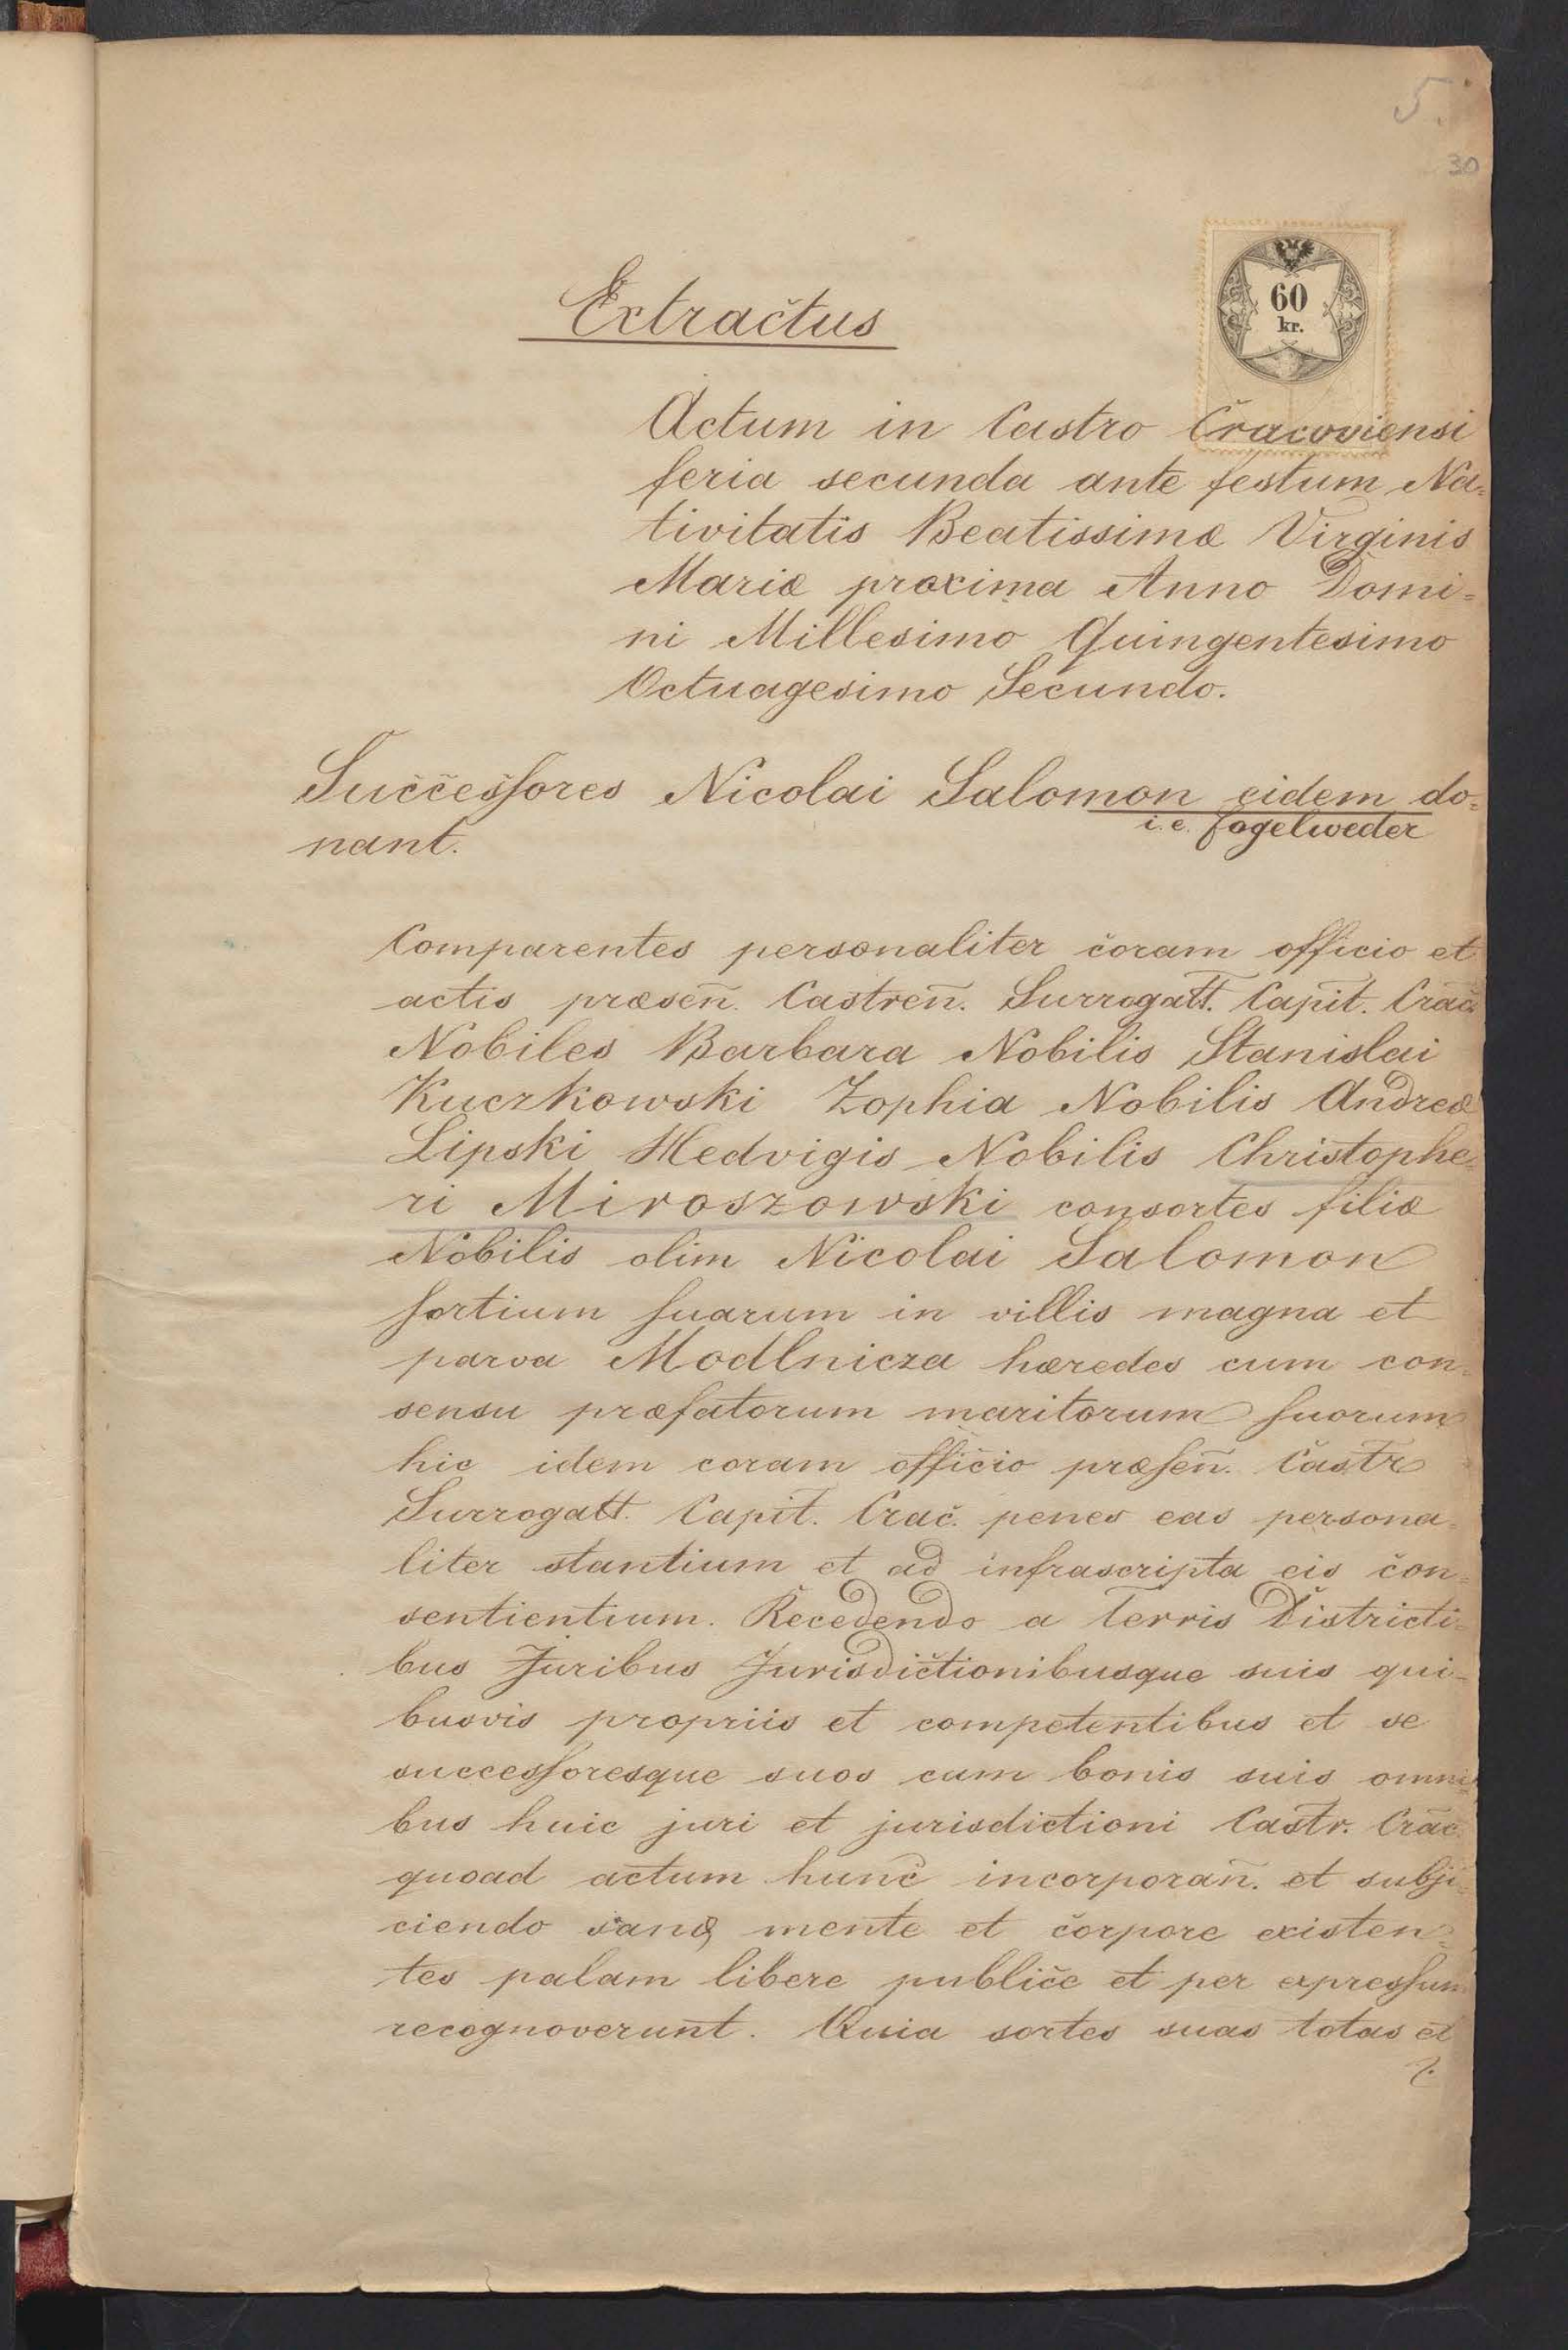 5.
30
60
kr.
Extractus
Actum in Castro Cracoviensi
feria secunda ante festum Na=
tivitatis Beatissimæ Virginis
Mariæ proxima Anno Domi=
ni Millesimo Quingentesimo
Octuagesimo Secundo.
Successores Nicolai Salomon eidem do=
i.e. Fogelweder
nant.
Comparentes personaliter coram officio et
actis præsen̄. Castren̄. Surrogatt. Capit. Crac.
Nobiles Barbara Nobilis Stanislai
Kuczkowski Zophia Nobilis Andreæ
Lipski Hedvigis Nobilis Christophe=
ri Miroszowski consortes filiæ
Nobilis olim Nicolai Salomon
sortium suarum in villis magna et
parva Modlnicza hæredes cum con=
sensu præfatorum maritorum suorum
hic idem coram officio præsen̄. Castr
Surrogatt. Capit. Crac. penes eas persona=
liter stantium et ad infrascripta eis con=
sentientium. Recedendo a Terris Districti=
bus Juribus Jurisdictionibusque suis qui=
busvis propriis et competentibus et se
successoresque suos cum bonis suis omni=
bus huic juri et jurisdictioni Castr. Crac.
quoad actum hunc incorporan̄. et subji=
ciendo sanæ mente et corpore existen=
tes palam libere publice et per expressum
recognoverunt. Quia sortes suas totas et